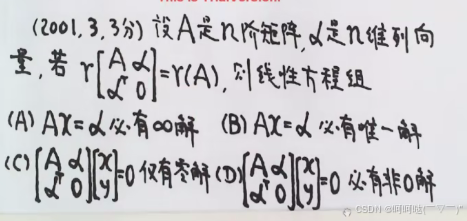 (2001,3,3分) 设A是n阶矩阵,α是n维列向
量,若 r[A α; αᵀ 0]=r(A), 则线性方程组
(A) AX=α 必有∞解 (B) AX=α 必有唯一解
(C) [A α; αᵀ 0][x; y]=0 仅有零解 (D) [A α; αᵀ 0][x; y]=0 必有非0解
CSDN @呵呵哒(￣▽￣)"